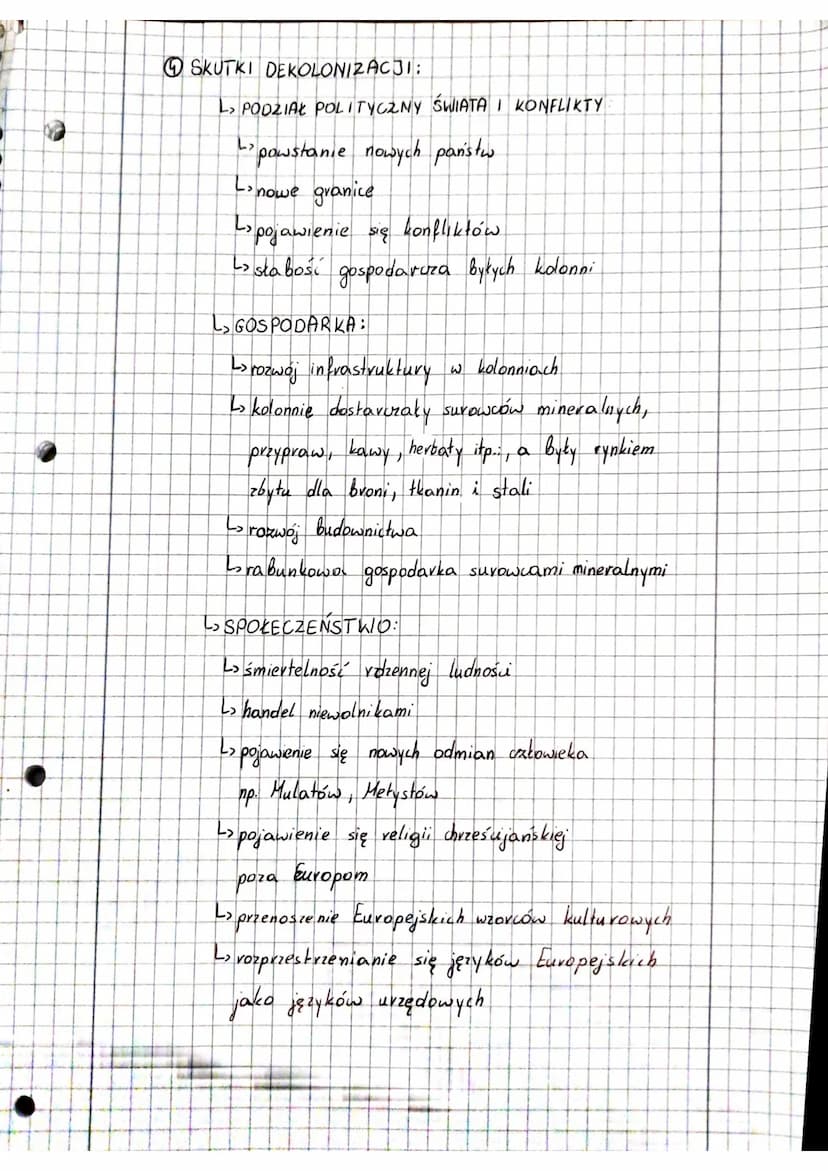 ④ SKUTKI DEKOLONIZACJI:
↳ PODZIAŁ POLITYCZNY ŚWIATA I KONFLIKTY
↳ powstanie nowych państw
↳ nowe granice
↳ pojawienie się konfliktów
↳ słabość gospodarcza byłych kolonni
↳ GOSPODARKA:
↳ rozwój infrastruktury w kolonniach
↳ kolonnie dostarczały surowców mineralnych,
przypraw, kawy, herbaty itp.:, a były rynkiem
zbytu dla broni, tkanin i stali
↳ rozwój budownictwa
↳ rabunkowa gospodarka surowcami mineralnymi
↳ SPOŁECZEŃSTWO:
↳ śmiertelność rdzennej ludności
↳ handel niewolnikami
↳ pojawienie się nowych odmian człowieka
np. Mulatów, Metysów
↳ pojawienie się religii chrześcijańskiej
poza Europom
↳ przenoszenie Europejskich wzorców kulturowych
↳ rozprzestrzenianie się języków Europejskich
jako języków urzędowych